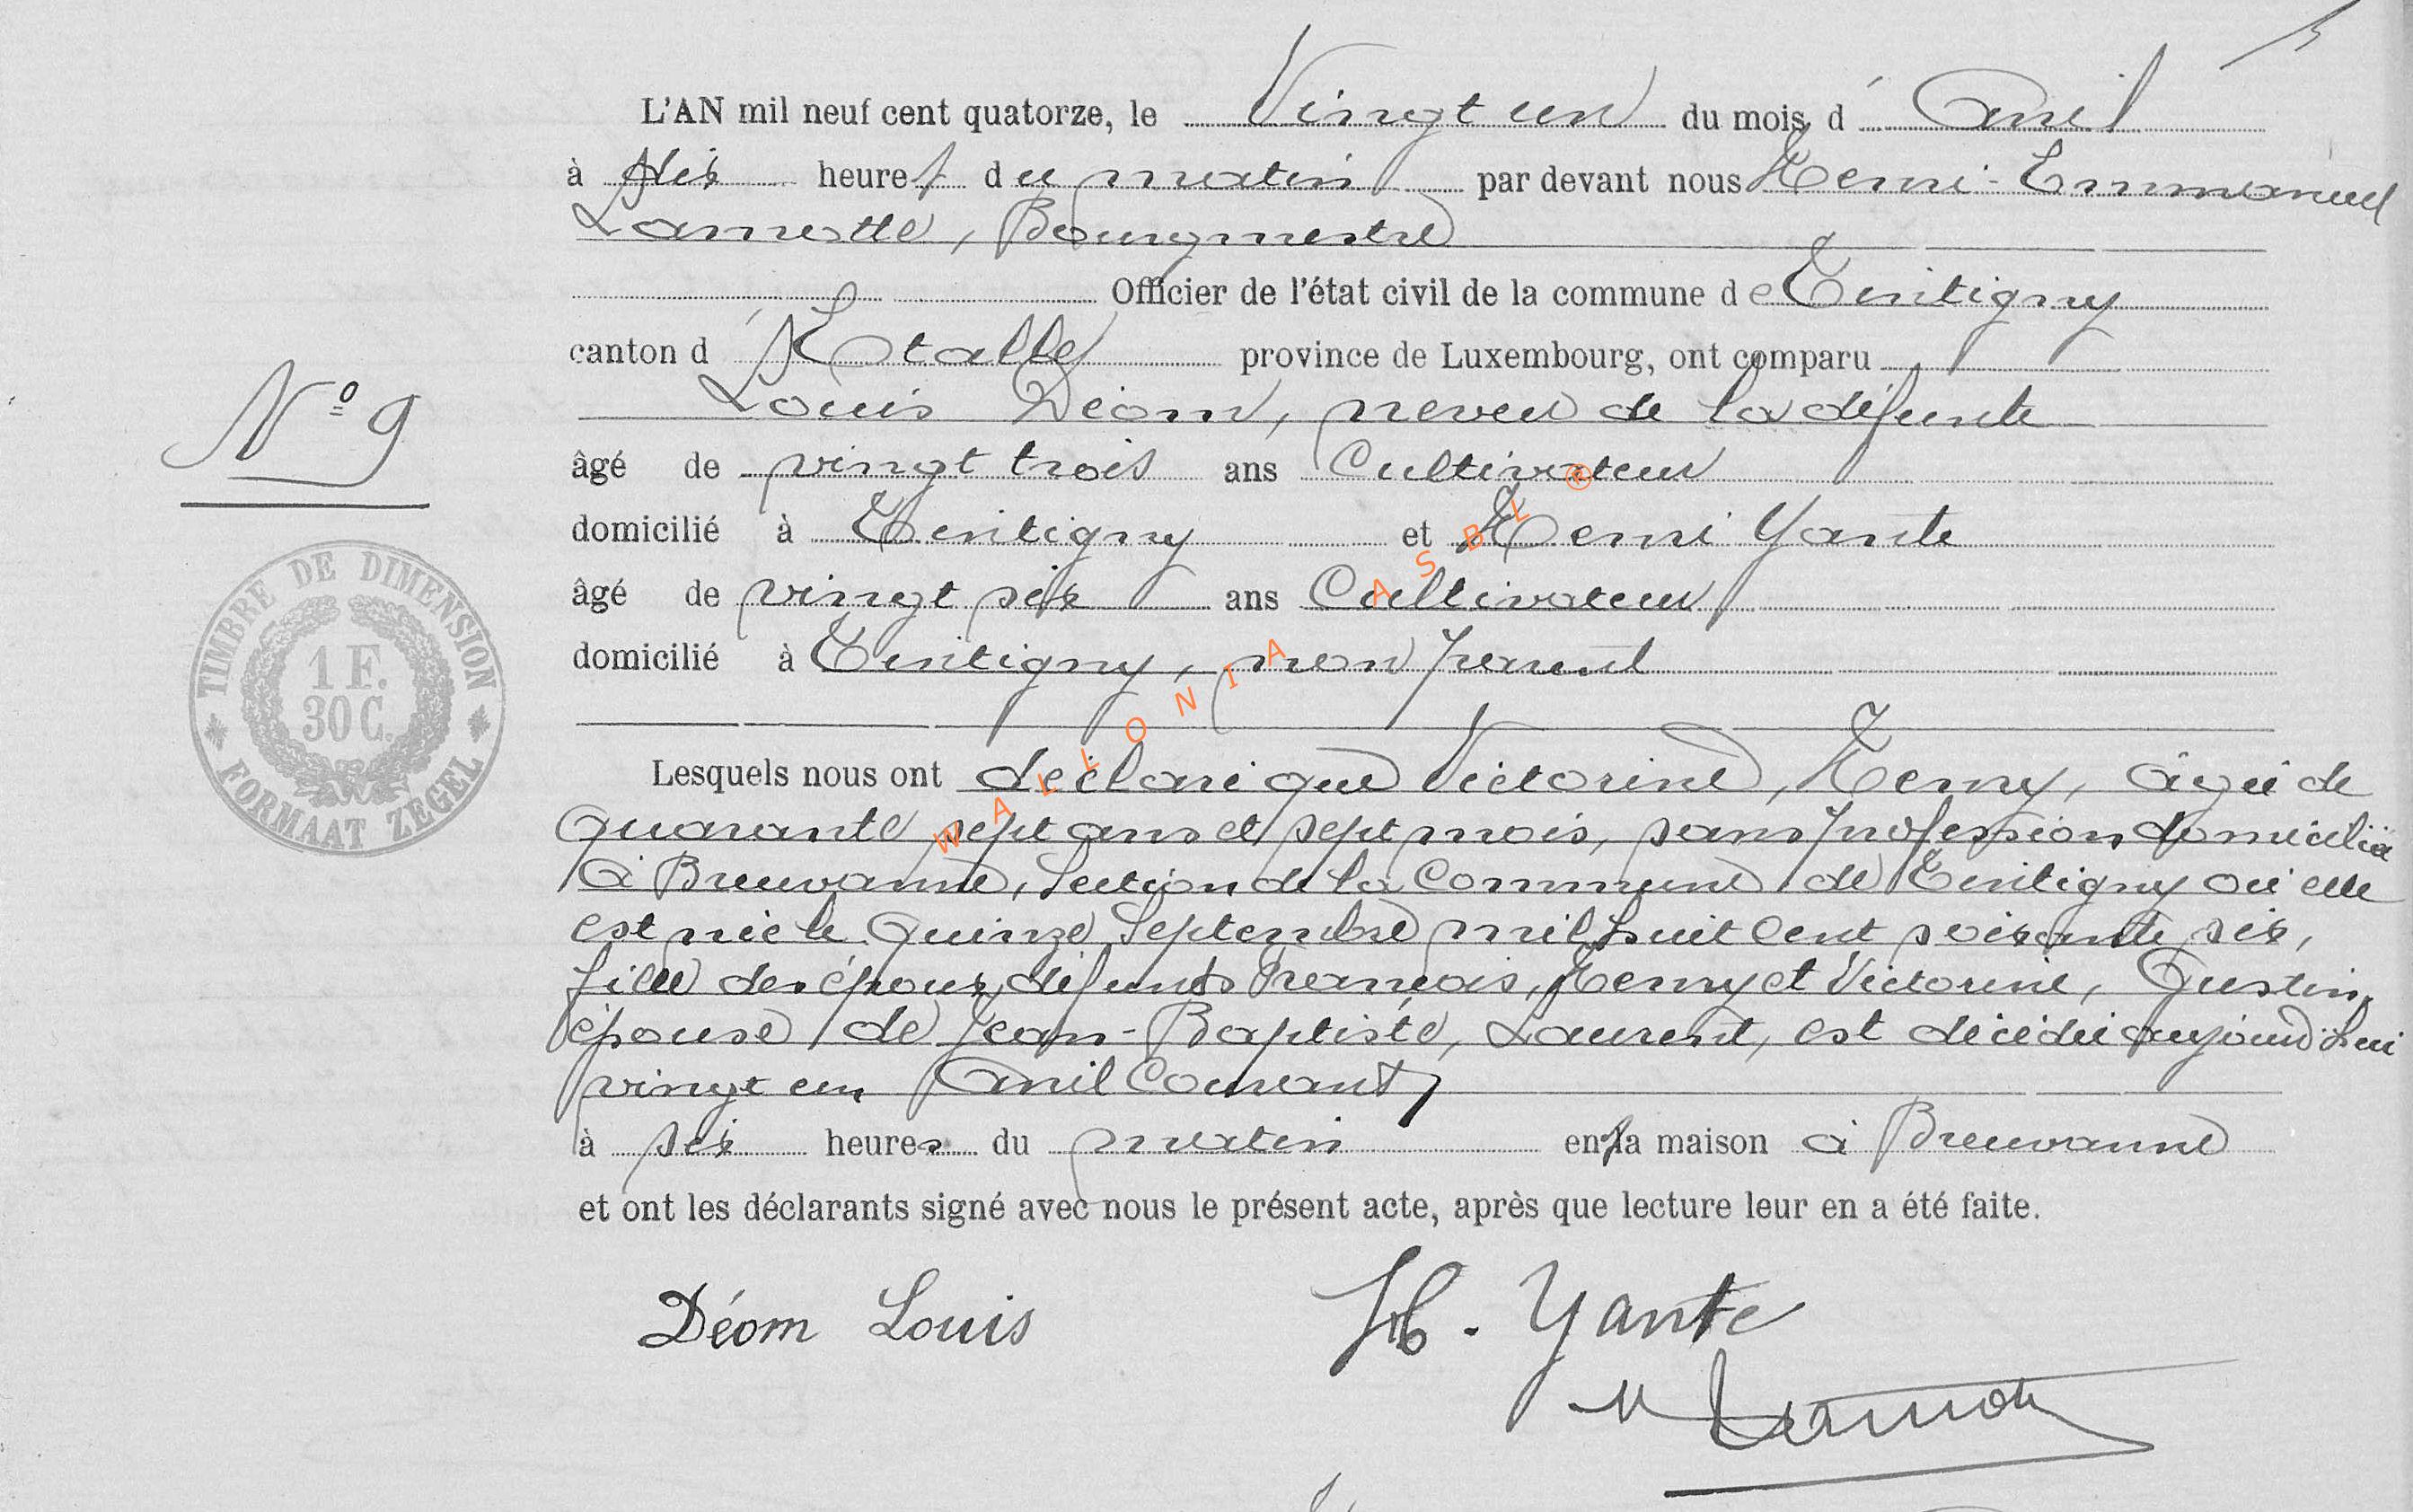 L'AN mil neuf cent quatorze, le Vingt un du mois d'Avril
à dix heures du matin par devant nous Henri-Emmanuel
Lamotte, Bourgmestre
Officier de l'état civil de la commune de Tintigny
canton d'Etalle province de Luxembourg, ont comparu
Louis Déom, neveu de la défunte
âgé de vingt trois ans Cultivateur
domicilié à Tintigny et Henri Yante
âgé de vingt six ans Cultivateur
domicilié à Tintigny, non parent
Lesquels nous ont déclaré que Victorine, Henry, âgée de
quarante sept ans et sept mois, sans profession domiciliée
à Breuvanne, Section de la Commune de Tintigny où elle
est née le Quinze Septembre mil huit cent soixante six,
fille des époux défunts François, Henry et Victorine, Justin,
épouse de Jean-Baptiste, Laurent, est décédée aujourd'hui
vingt un Avril Courant,
à six heures du matin en sa maison à Breuvanne
et ont les déclarants signé avec nous le présent acte, après que lecture leur en a été faite.
Déom Louis H. Yante
N° 9
TIMBRE DE DIMENSION
1 F.
30 C.
FORMAAT ZEGEL
WALLONIA ASBL ®